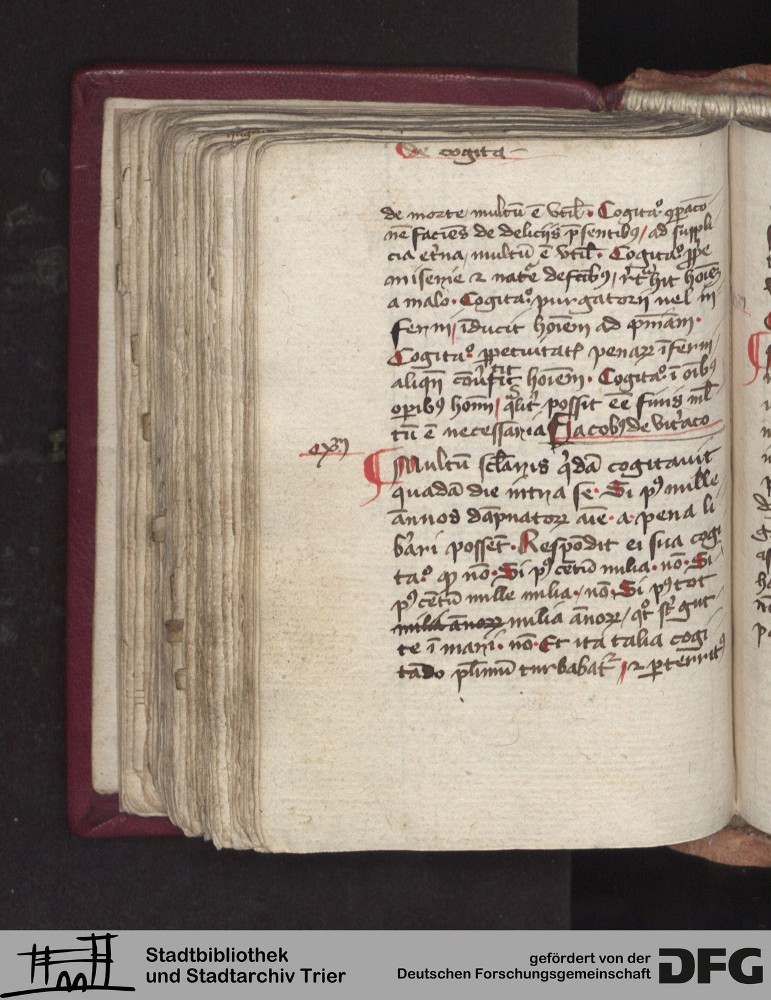 De cogita
de morte multū ē vtil̄. Cogita° ꝯpaco
ne faciēs de deliciis p̄sentibꝰ / ad suppli
cia et̾na / multū ē vtil̄. Cogita° ꝓpe
miserie ⁊ nat̾e defcībꝰ / hoīeꝫ
a malo. Cogita° purgatorij uel in
ferni / īducit hoīem ad pn̄iam.
Cogita° ꝑpetuitatꝭ penaꝝ īferni
aliqn̄ hoīem. Cogita° ī oībꝰ
oꝑibꝰ homi / q̄lit̾ possit eē finis ml̄
tū ē necessaria Jacobꝰ de vit̾aco
exm̄
Multū sclaris q̄dā cogitauit
quadā die intra se. Si pꝰ mille
annos dāpnatoꝝ aīe a pena li
b̾ari posset. Respōdit ei sua cogi
ta° ꝙ nō. Si pꝰ cētū milia. nō. Si
pꝰ cētū mille milia. nō. Si pꝰ tot
milia annoꝝ milia ānoꝝ / qͦt st̄ gut
te ī mari. nō. Et ita talia cogi
tādo pl̄imū turbabat̾ / ⁊ ꝑterritꝰ
Stadtbibliothek
und Stadtarchiv Trier
gefördert von der
Deutschen Forschungsgemeinschaft
DFG